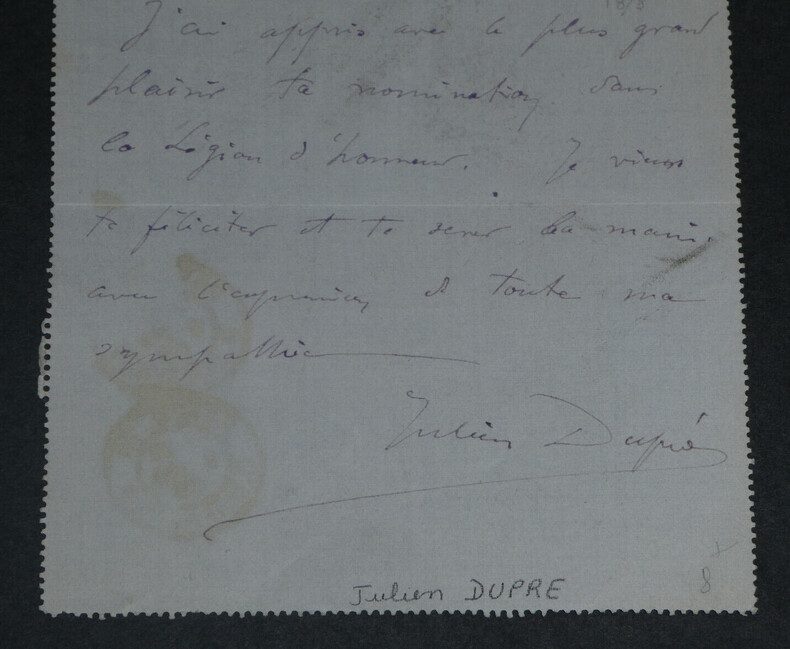 J'ai appris avec le plus grand
plaisir ta nomination dans
la Légion d'honneur. Je viens
te féliciter et te serrer la main,
avec l'expression de toute ma
sympathie
Julien Dupré
Julien DUPRE
8